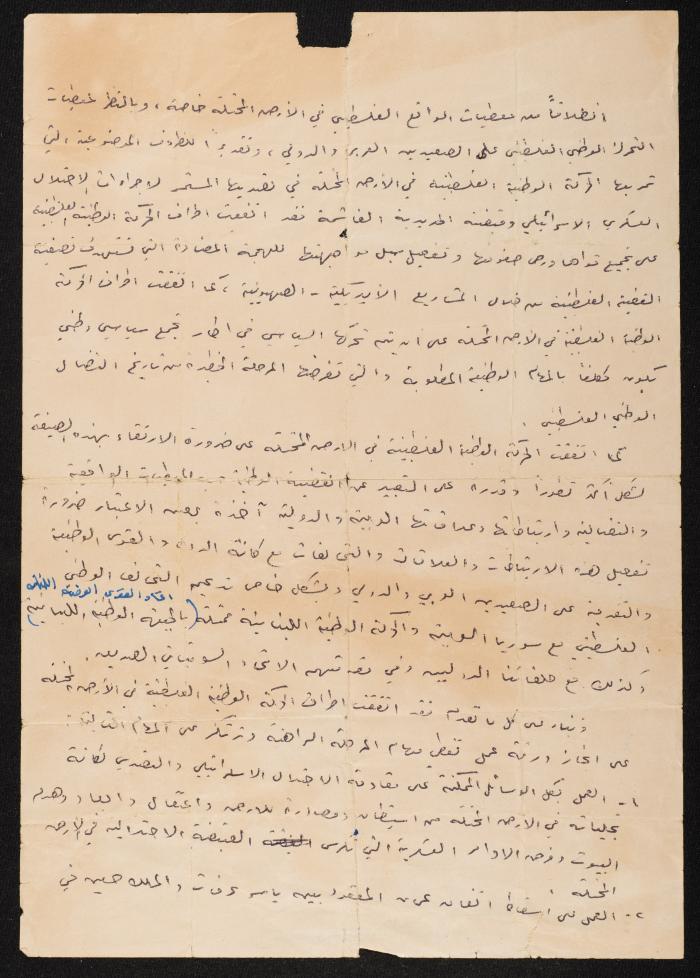 انطلاقاً من معطيات الواقع الفلسطيني في الأرض المحتلة خاصة ، وبالنظر لمعطيات
التحرك الوطني الفلسطيني على الصعيدين العربي والدولي ، وتقديراً للظروف الموضوعية التي
تمر بها الحركة الوطنية الفلسطينية في الأرض المحتلة في تصديها المستمر لاجراءات الاحتلال
العسكري الاسرائيلي وقبضته الحديدية الفاشية فقد اتفقت اطراف الحركة الوطنية الفلسطينية
على تجميع قواها ورص صفوفها وتفعيل سبل مواجهتها للهجمة المضادة التي تستهدف تصفية
القضية الفلسطينية من خلال المشاريع الأمريكية - الصهيونية ، كما اتفقت اطراف الحركة
الوطنية الفلسطينية في الارض المحتلة على ان يتم تحركها السياسي في اطار تجمع سياسي وطني
يكون مكلفاً بالمهام الوطنية المطلوبة والتي تفرضها المرحلة الخطيرة من تاريخ النضال
الوطني الفلسطيني .
كما اتفقت الحركة الوطنية الفلسطينية في الارض المحتلة على ضرورة الارتقاء بهذه الصيغة
لشكل أكثر تطوراً وقدرة على التعبير عن القضية الوطنية الواقعية
والنضالية وارتباطاتها وعلاقاتها العربية والدولية آخذة بعين الاعتبار ضرورة
تفعيل هذه الارتباطات والعلاقات والتحالفات مع كافة الدول والقوى الوطنية
والتقدمية على الصعيدين العربي والدولي وبشكل خاص تدعيم التحالف الوطني
الفلسطيني مع سوريا العربية والحركة الوطنية اللبنانية ممثلة (بالجبهة الوطنية اللبنانية)
وكذلك مع حلفائنا الدوليين وفي مقدمتهم الاتحاد السوفياتي الصديق .
وبناء على كل ما تقدم فقد اتفقت اطراف الحركة الوطنية الفلسطينية في الأرض المحتلة
على انجاز ورقة عمل تغطي مهام المرحلة الراهنة وترتكز على المهام التالية :
١- العمل بكل الوسائل الممكنة على مقاومة الاحتلال الاسرائيلي والتصدي لكافة
تجلياته في الأرض المحتلة من استيطان ومصادرة للارض واعتقال وابعاد وهدم
البيوت وفرض الاوامر العسكرية التي تكرس القبضة الاحتلالية في الأرض
المحتلة .
٢- العمل على اسقاط اتفاق عمان المعقود بين ياسر عرفات والملك حسين في